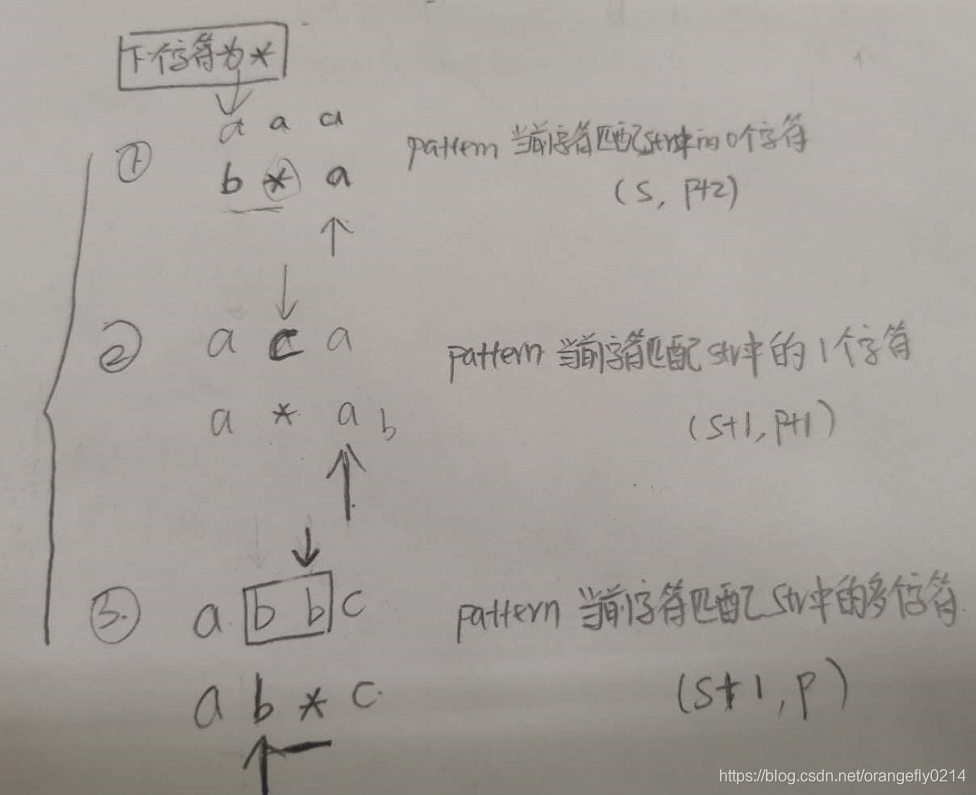 下个字符为*
a a a
① pattern 当前字符匹配str中的0个字符
b * a
(s, p+2)
② a c a pattern 当前字符匹配str中的1个字符
a * a b
(s+1, p+1)
③ a b b c pattern 当前字符匹配str中的多个字符
a b * c
(s+1, p)
https://blog.csdn.net/orangefly0214